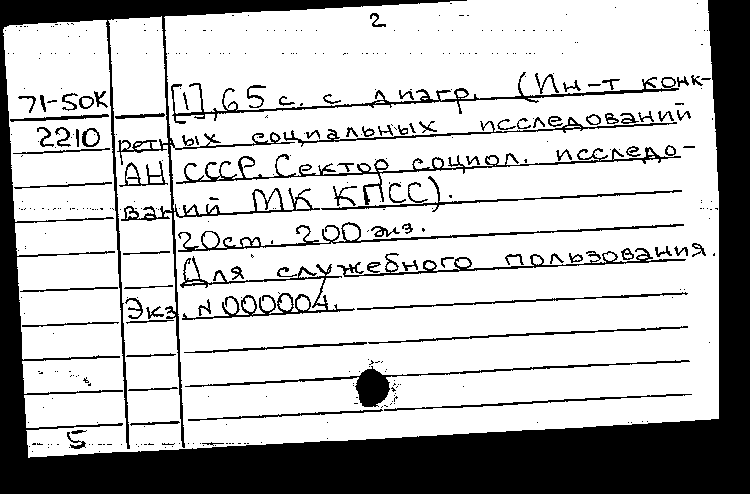 2
71-50К [1], 65 с. с диагр. (Ин-т конк-
2210 ретных социальных исследований
АН СССР. Сектор социол. исследо-
ваний МК КПСС).
20см. 200 экз.
Для служебного пользования.
Экз. N 000004.
5